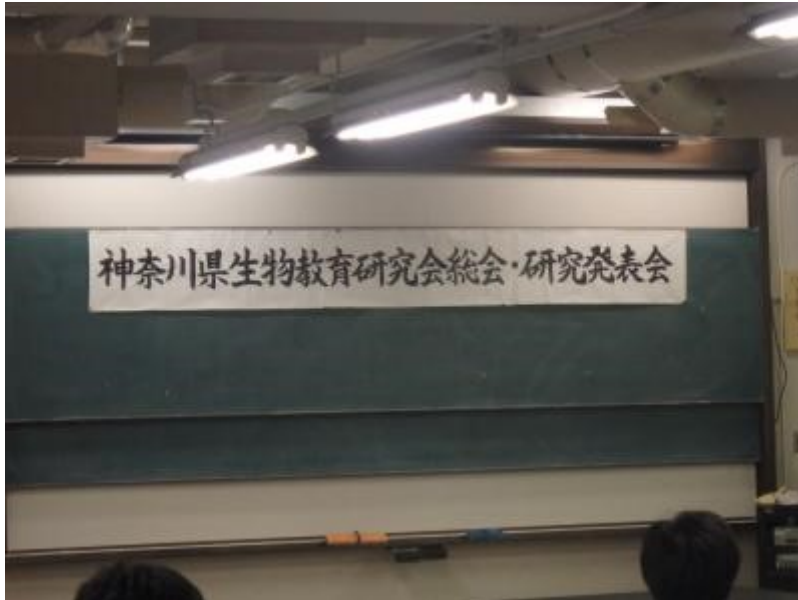 神奈川県生物教育研究会総会・研究発表会